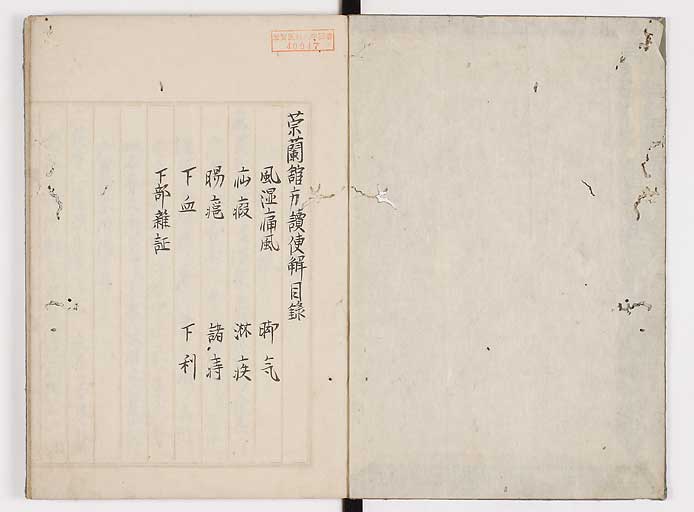 崇蘭館方讀便解目錄
風湿痛風 脚气
疝瘕 淋疾
腸 諸痔
下血 下利
下部雜証
40047